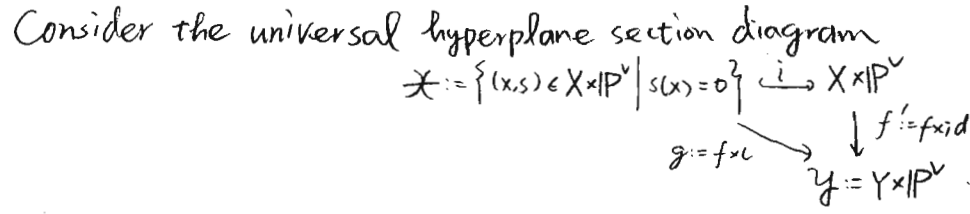 Consider the universal hyperplane section diagram
𝒳 := {(x,s) ∈ X×ℙ^∨ | s(x)=0} ↪^i X×ℙ^∨
g := f×ι ↘ ↓ f' := f×id
𝒴 := Y×ℙ^∨.